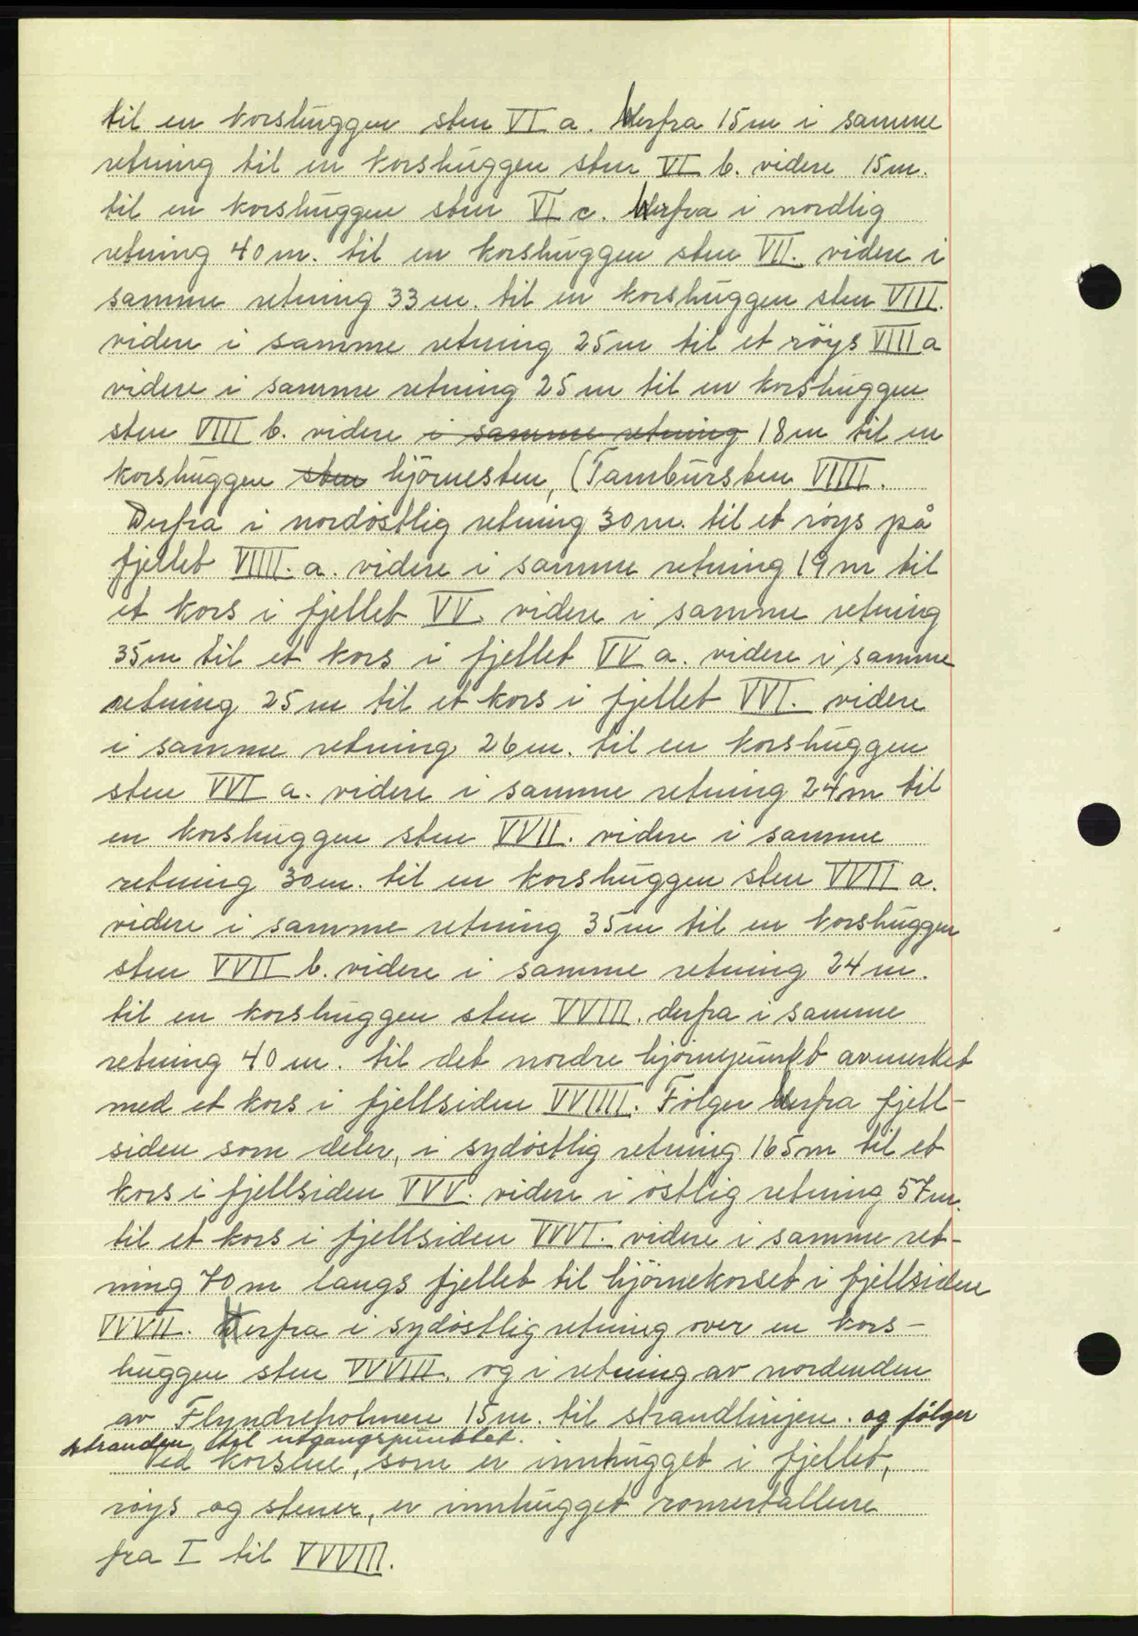 til en korshuggen sten VI a. Derfra 15m i samme
retning til en korshuggen sten VI b. videre 15m.
til en korshuggen sten VI c. Derfra i nordlig
retning 40m. til en korshuggen sten VII. videre i
samme retning 33m. til en korshuggen sten VIII.
videre i samme retning 25m til et röys VIII a
videre i samme retning 25m til en korshuggen
sten VIII b. videre i samme retning 18m til en
korshuggen sten hjörnesten, (Tambursten VIIII.
Derfra i nordöstlig retning 30m. til et röys på
fjellet VIIII. a. videre i samme retning 19m til
et kors i fjellet VV. videre i samme retning
35m til et kors i fjellet VV a. videre i samme
retning 25m til et kors i fjellet VVI. videre
i samme retning 26m. til en korshuggen
sten VVI a. videre i samme retning 24m til
en korshuggen sten VVII. videre i samme
retning 30m. til en korshuggen sten VVII a.
videre i samme retning 35m til en korshuggen
sten VVII b. videre i samme retning 24m.
til en korshuggen sten VVIII. derfra i samme
retning 40m. til det nordre hjörnepunkt avmerket
med et kors i fjellsiden VVIIII. Fölger derfra fjell-
siden som deler, i sydöstlig retning 165m til et
kors i fjellsiden VVV. videre i östlig retning 57m.
til et kors i fjellsiden VVVI. videre i samme ret-
ning 70m langs fjellet til hjörnekorset i fjellsiden
VVVII. Derfra i sydöstlig retning over en kors-
huggen sten VVVIII. og i retning av nordenden
av Flyndreholmen 15m. til strandlinjen. og fölger
stranden til utgangspunktet.
Ved korsene, som er innhugget i fjellet,
röys og stener, er innhugget romertallene
fra I til VVVIII.